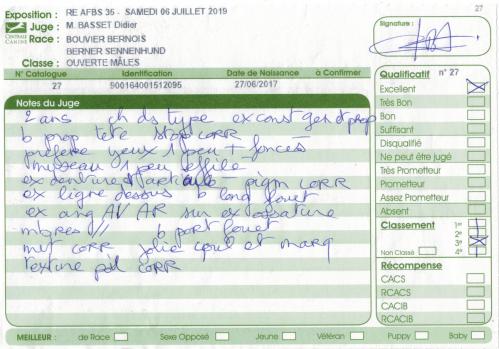 Exposition : RE AFBS 35 - SAMEDI 06 JUILLET 2019
27
CENTRALE CANINE
Juge : M. BASSET Didier
Race : BOUVIER BERNOIS
BERNER SENNENHUND
Classe : OUVERTE MÂLES
Signature :
N° Catalogue Identification Date de Naissance à Confirmer
27 900164001512095 27/06/2017
Notes du Juge
2 ans ch ds type ex const gen et prop
b prop tête stop CORR
préfère yeux 1 peu + foncés
museau 1 peu effilé
ex denture pigm CORR
ex ligne dessous b long fouet
ex ang AV AR sur ex ossature
mbres // b port fouet
mvt CORR jolie coul et marq
texture poil CORR
Qualificatif n° 27
Excellent
Très Bon
Bon
Suffisant
Disqualifié
Ne peut être jugé
Très Prometteur
Prometteur
Assez Prometteur
Absent
Classement 1er
2e
3e
Non Classé 4e
Récompense
CACS
RCACS
CACIB
RCACIB
MEILLEUR : de Race Sexe Opposé Jeune Vétéran Puppy Baby